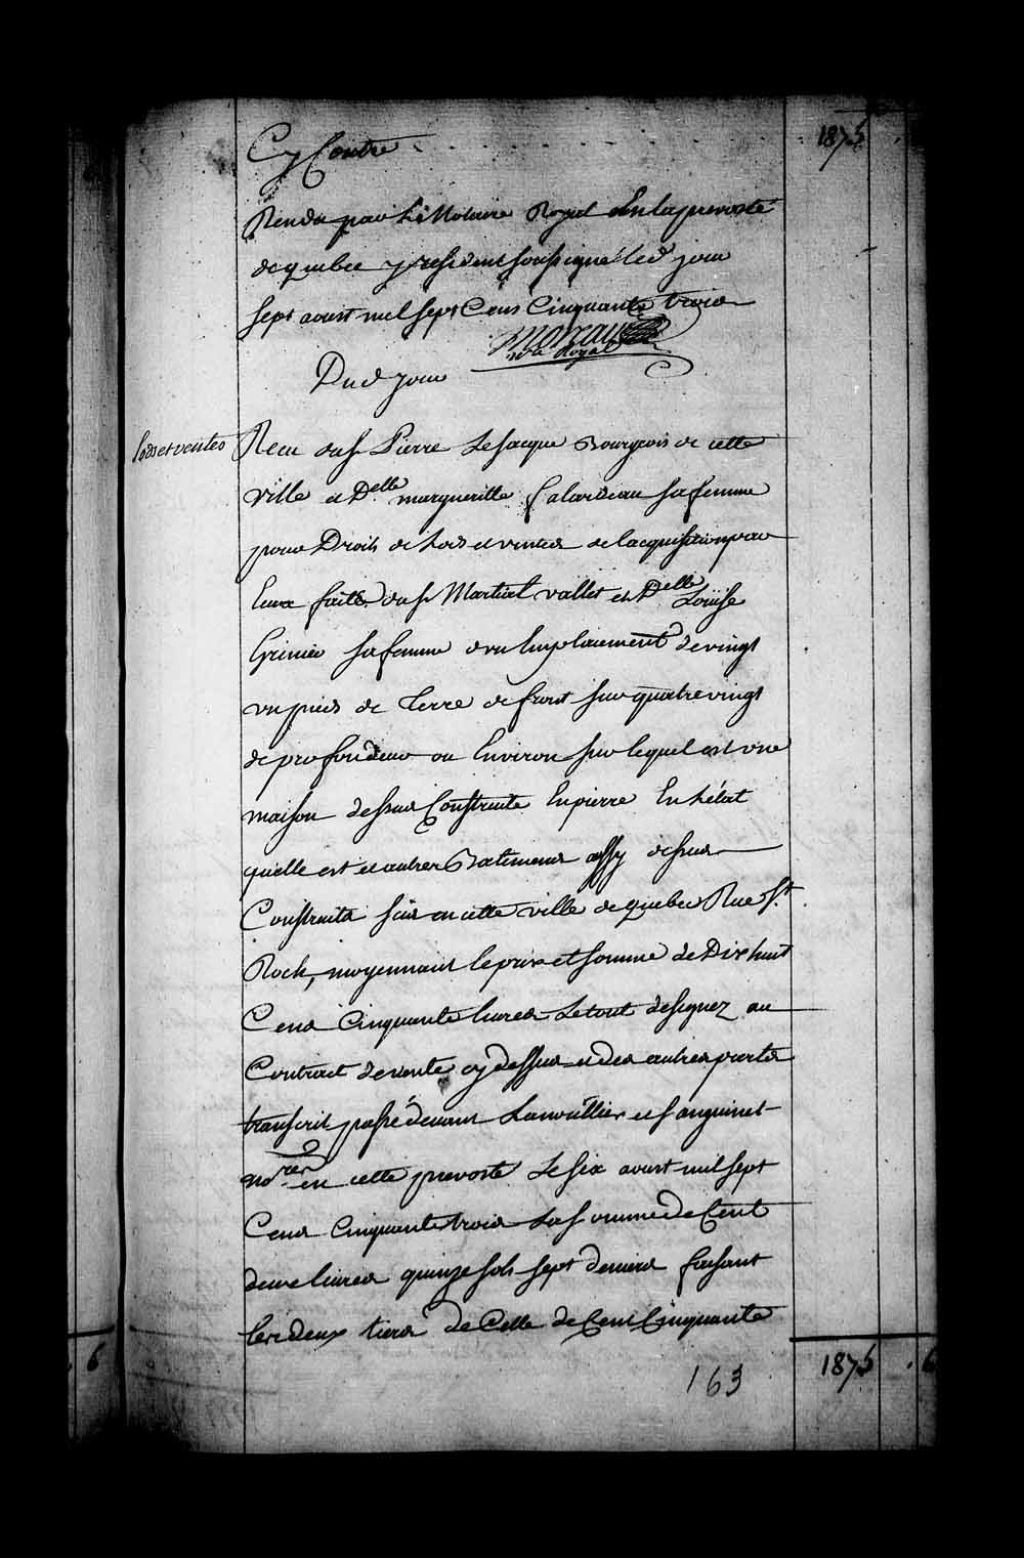 Cy Contre . . . . . . . . . 1875
Rendu par Le Notaire Royal En la prevosté
de quebec y resident soussigné led jour
sept aoust mil sept Cens Cinquante trois
Moreau
no.re Royal
Dud jour
lods et ventes
Recu du Sr Pierre Lesacque Bourgeois de cette
ville et Delle margueritte falardeau sa femme
pour Droits de Lods et ventes de lacquisition par
Eux faite du Sr Martial vallet et Delle Louise
Grinier sa femme dun Emplacement de vingt
un pieds de terre de front sur quatre vingt
de profondeur ou Environ sur lequel est une
maison dessus Construite En pierre En Létat
quelle est et autres Batimens assy dessus
Construits scis en cette ville de quebec Rue St
Rock, moyennant le prix et somme de Dix huit
Cens Cinquante livres Le tout designez au
Contract de vente cy dessus et des autres parts
transcrit passé devant Lanoullier et Sanguinet
nores en cette prevosté Le six aoust mil sept
Cens Cinquante trois La somme de Cent
deux livres quinze sols sept deniers faisant
les deux tiers de Celle de Cent Cinquante
163
6
1875 . 6